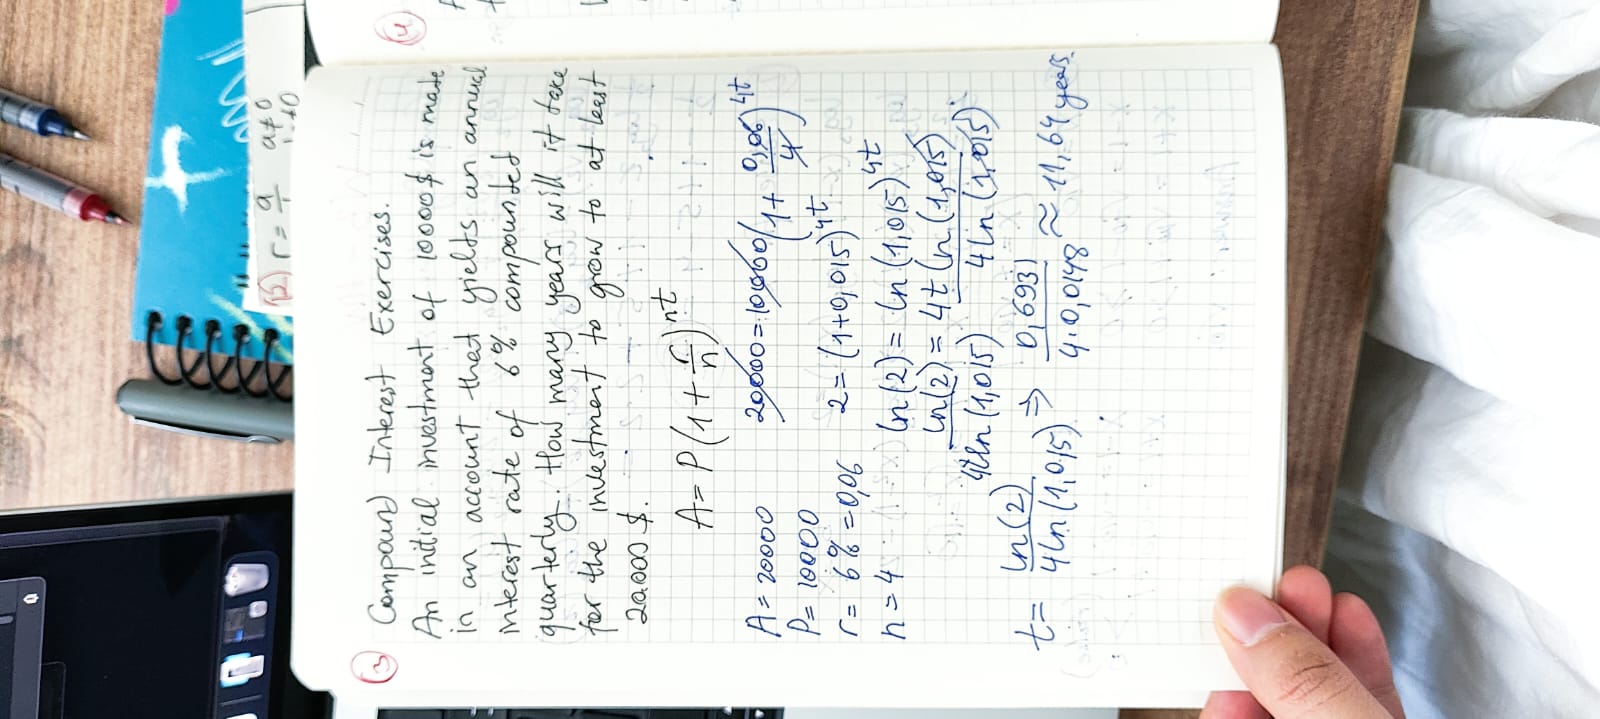 3
Compound Interest Exercises.
An initial investment of 10000$ is mate
in an account that yields an annual
interest rate of 6% compounted
quarterly. How many years will it take
for the investment to grow to at least
20.000 $.
A = P(1 + r/n)^nt
A = 20000
P = 10000
r = 6% = 0,06
n = 4
20000 = 10000(1 + 0,06/4)^4t
2 = (1+0,015)^4t
ln(2) = ln(1,015)^4t
ln(2)/4ln(1,015) = 4t ln(1,015)/4ln(1,015)
t = ln(2)/4ln(1,015) ⇒ 0,6931/4.0,0148 ≈ 11,64 years.
4
12) r = a/1 a≠0